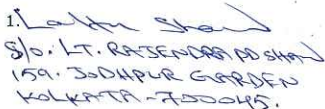 1. Lalit Shaw
S/o. LT. RAJENDRA PD SHAW
159. JODHPUR GARDEN
KOLKATA - 700045.